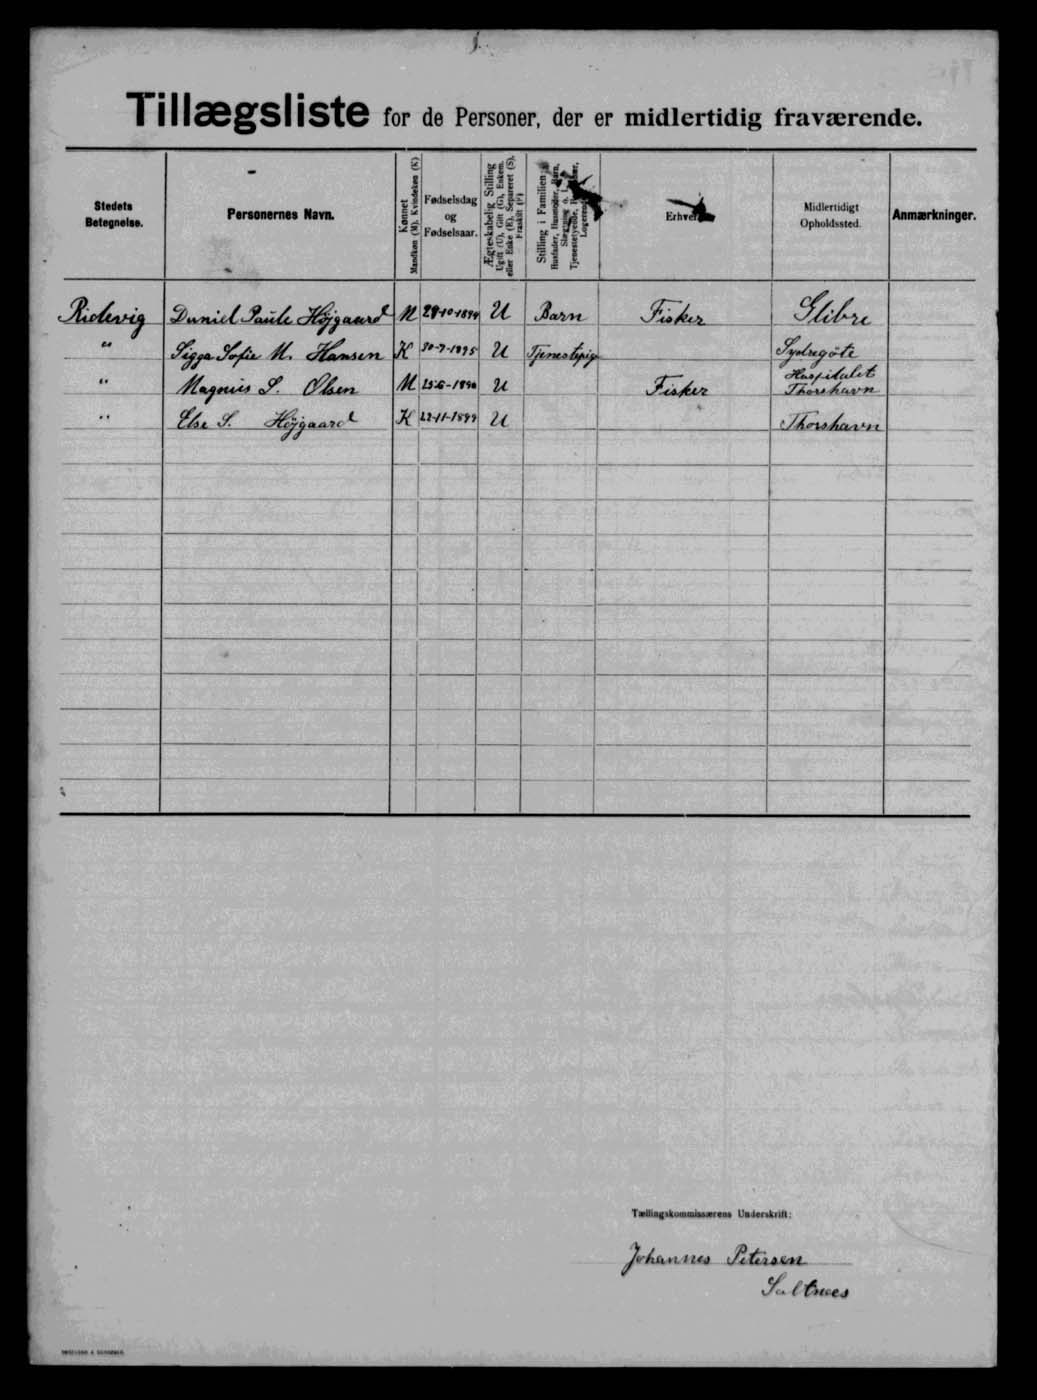 Tillægsliste for de Personer, der er midlertidig fraværende.
Stedets Betegnelse.
Personernes Navn.
Kønnet Mandkøn (M), Kvindekøn (K)
Fødselsdag og Fødselsaar.
Ægteskabelig Stilling Ugift (U), Gift (G), Enkem. eller Enke (E), Separeret (S), Fraskilt (F)
Stilling i Familien
Midlertidigt Opholdssted.
Anmærkninger.
Ridevig Daniel Paule Højgaard M 29-10-1894 U Barn Fisker Glibre
" Sigga Sofie M. Hansen K 30-7-1895 U Tjenestepige Sydregöte
" Magnus S. Olsen M 25-6-1890 U Fisker Hospitalet Thorshavn
" Else S. Højgaard K 22-11-1899 U Thorshavn
Tællingskommissærens Underskrift:
Johannes Petersen
Saltnæs